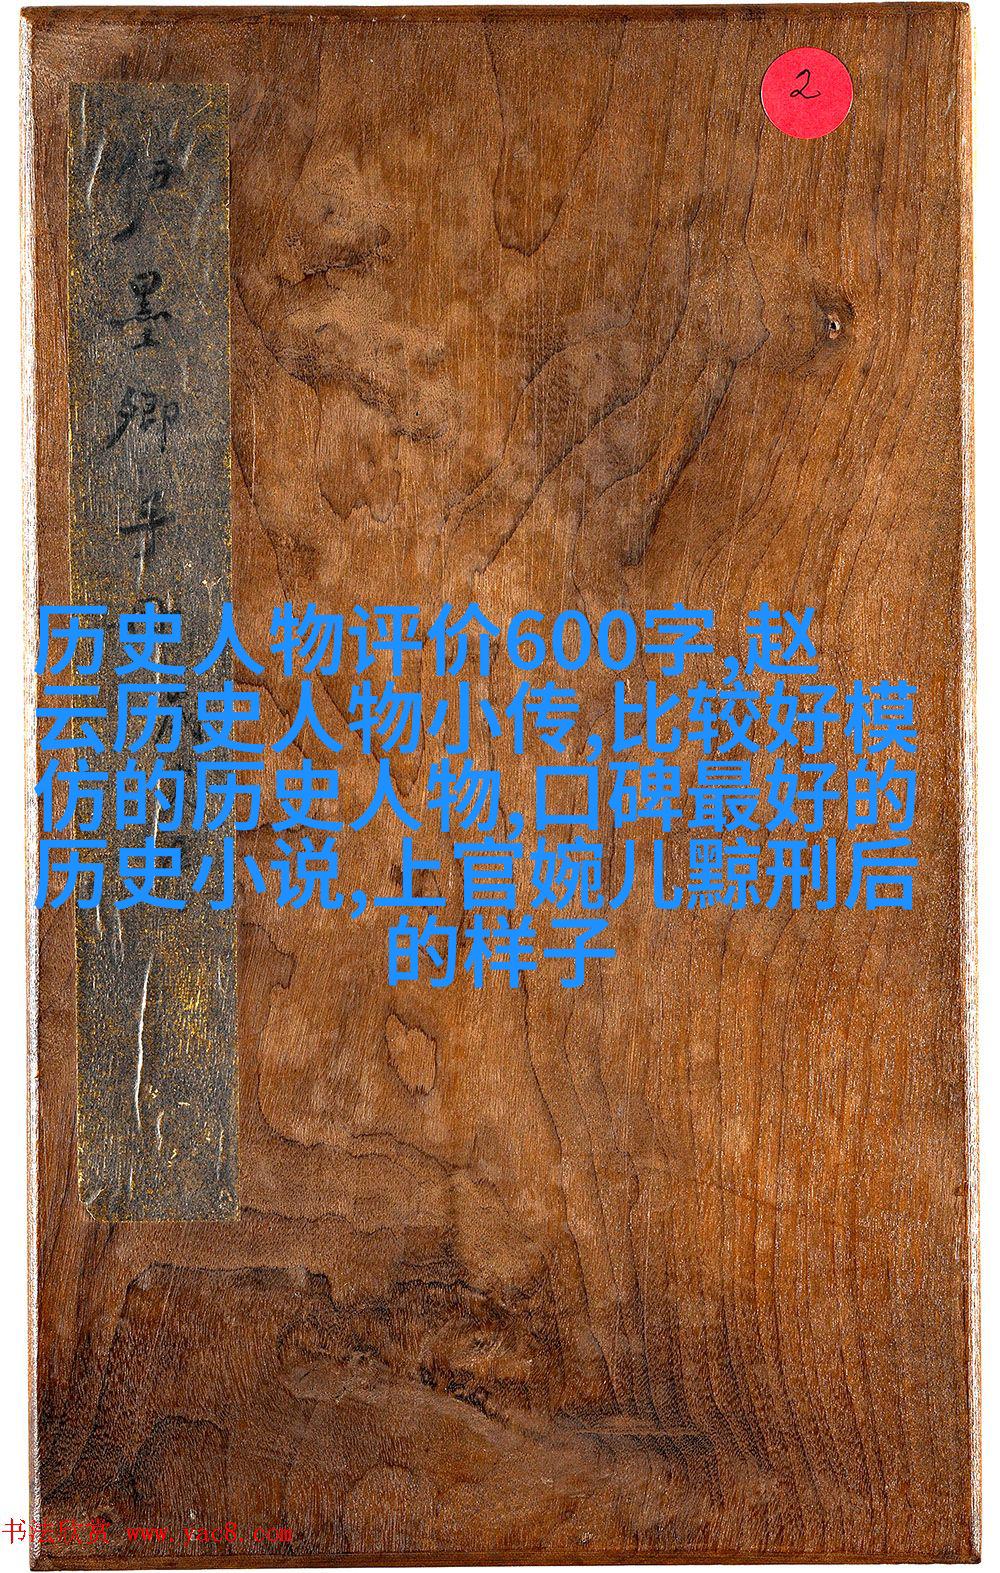 2
墨卿
历史人物评价600字,赵
云历史人物小传,比较好模
仿的历史人物,口碑最好的
历史小说,上官婉儿黥刑后
的样子
书法欣赏 www.yac8.com